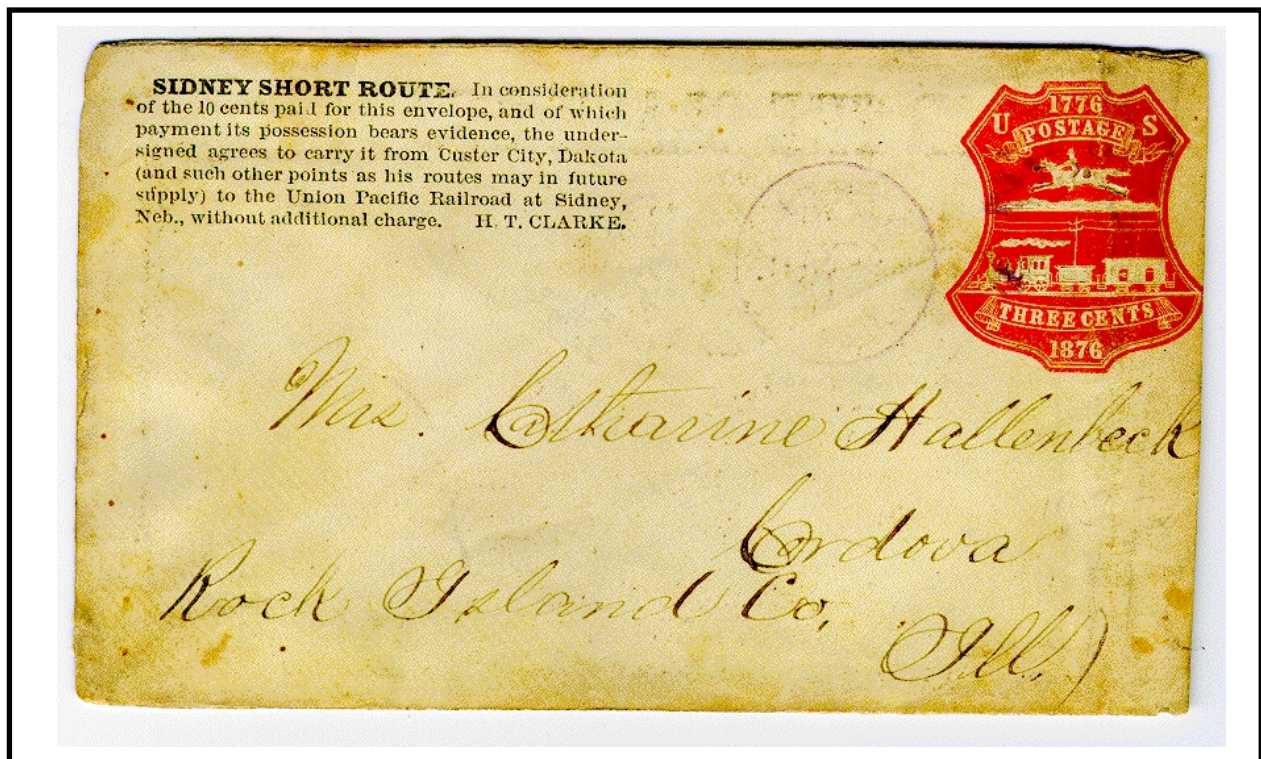 SIDNEY SHORT ROUTE. In consideration
of the 10 cents paid for this envelope, and of which
payment its possession bears evidence, the under-
signed agrees to carry it from Custer City, Dakota
(and such other points as his routes may in future
supply) to the Union Pacific Railroad at Sidney,
Neb., without additional charge. H. T. CLARKE.
1776
U POSTAGE S
THREE CENTS
1876
Mrs. Catharine Hallenbeck
Cordova
Rock Island Co,
Ill.)